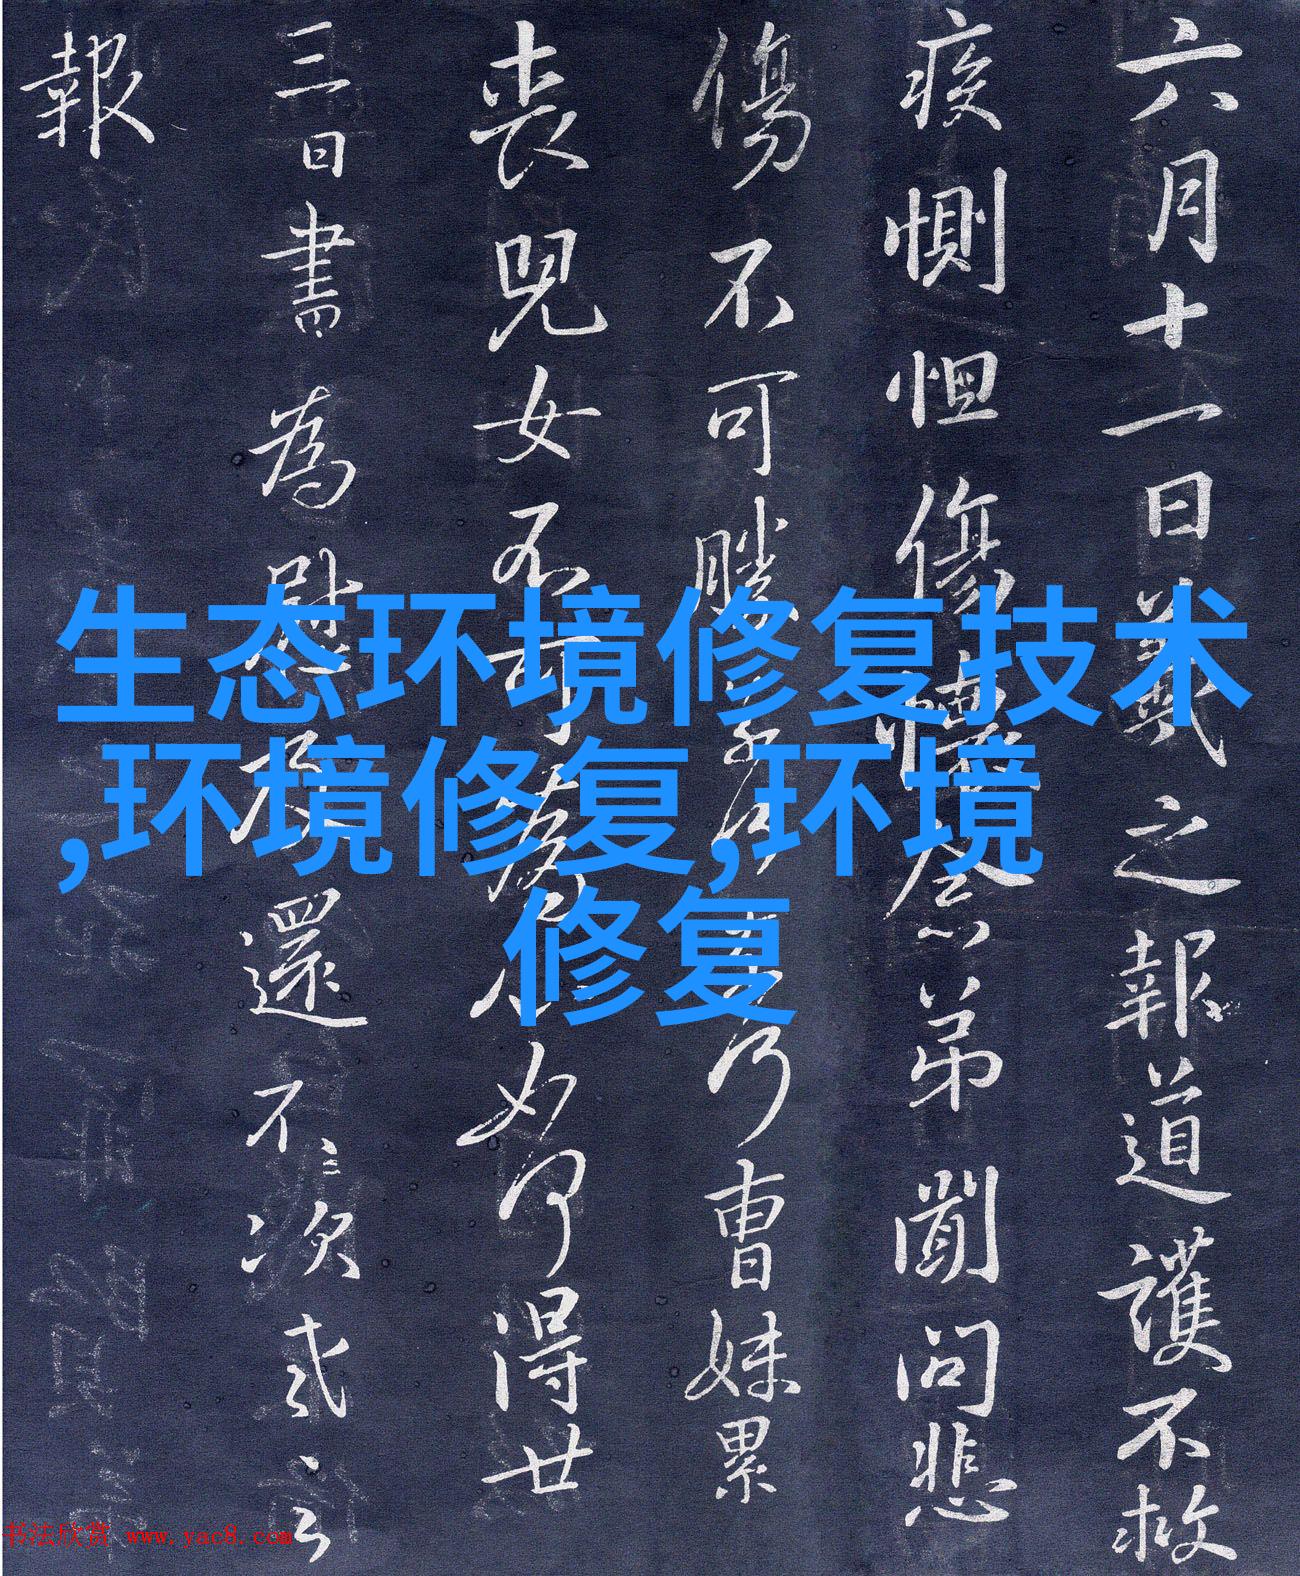 六月十一日羲之報道護不救
疾惻怛傷懷
弟聞問悲
傷不可勝
乃
曹妹累
喪兒女不可為
如何得廿
三日書為慰
還不次
報
生态环境修复技术
,环境修复,环境
修复
书法欣赏 www.yac8.com